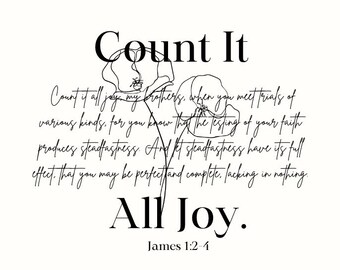 Count It
Count it all joy, my brothers, when you meet trials of
various kinds, for you know that the testing of your faith
produces steadfastness. And let steadfastness have its full
effect, that you may be perfect and complete, lacking in nothing
All Joy.
James 1:2-4